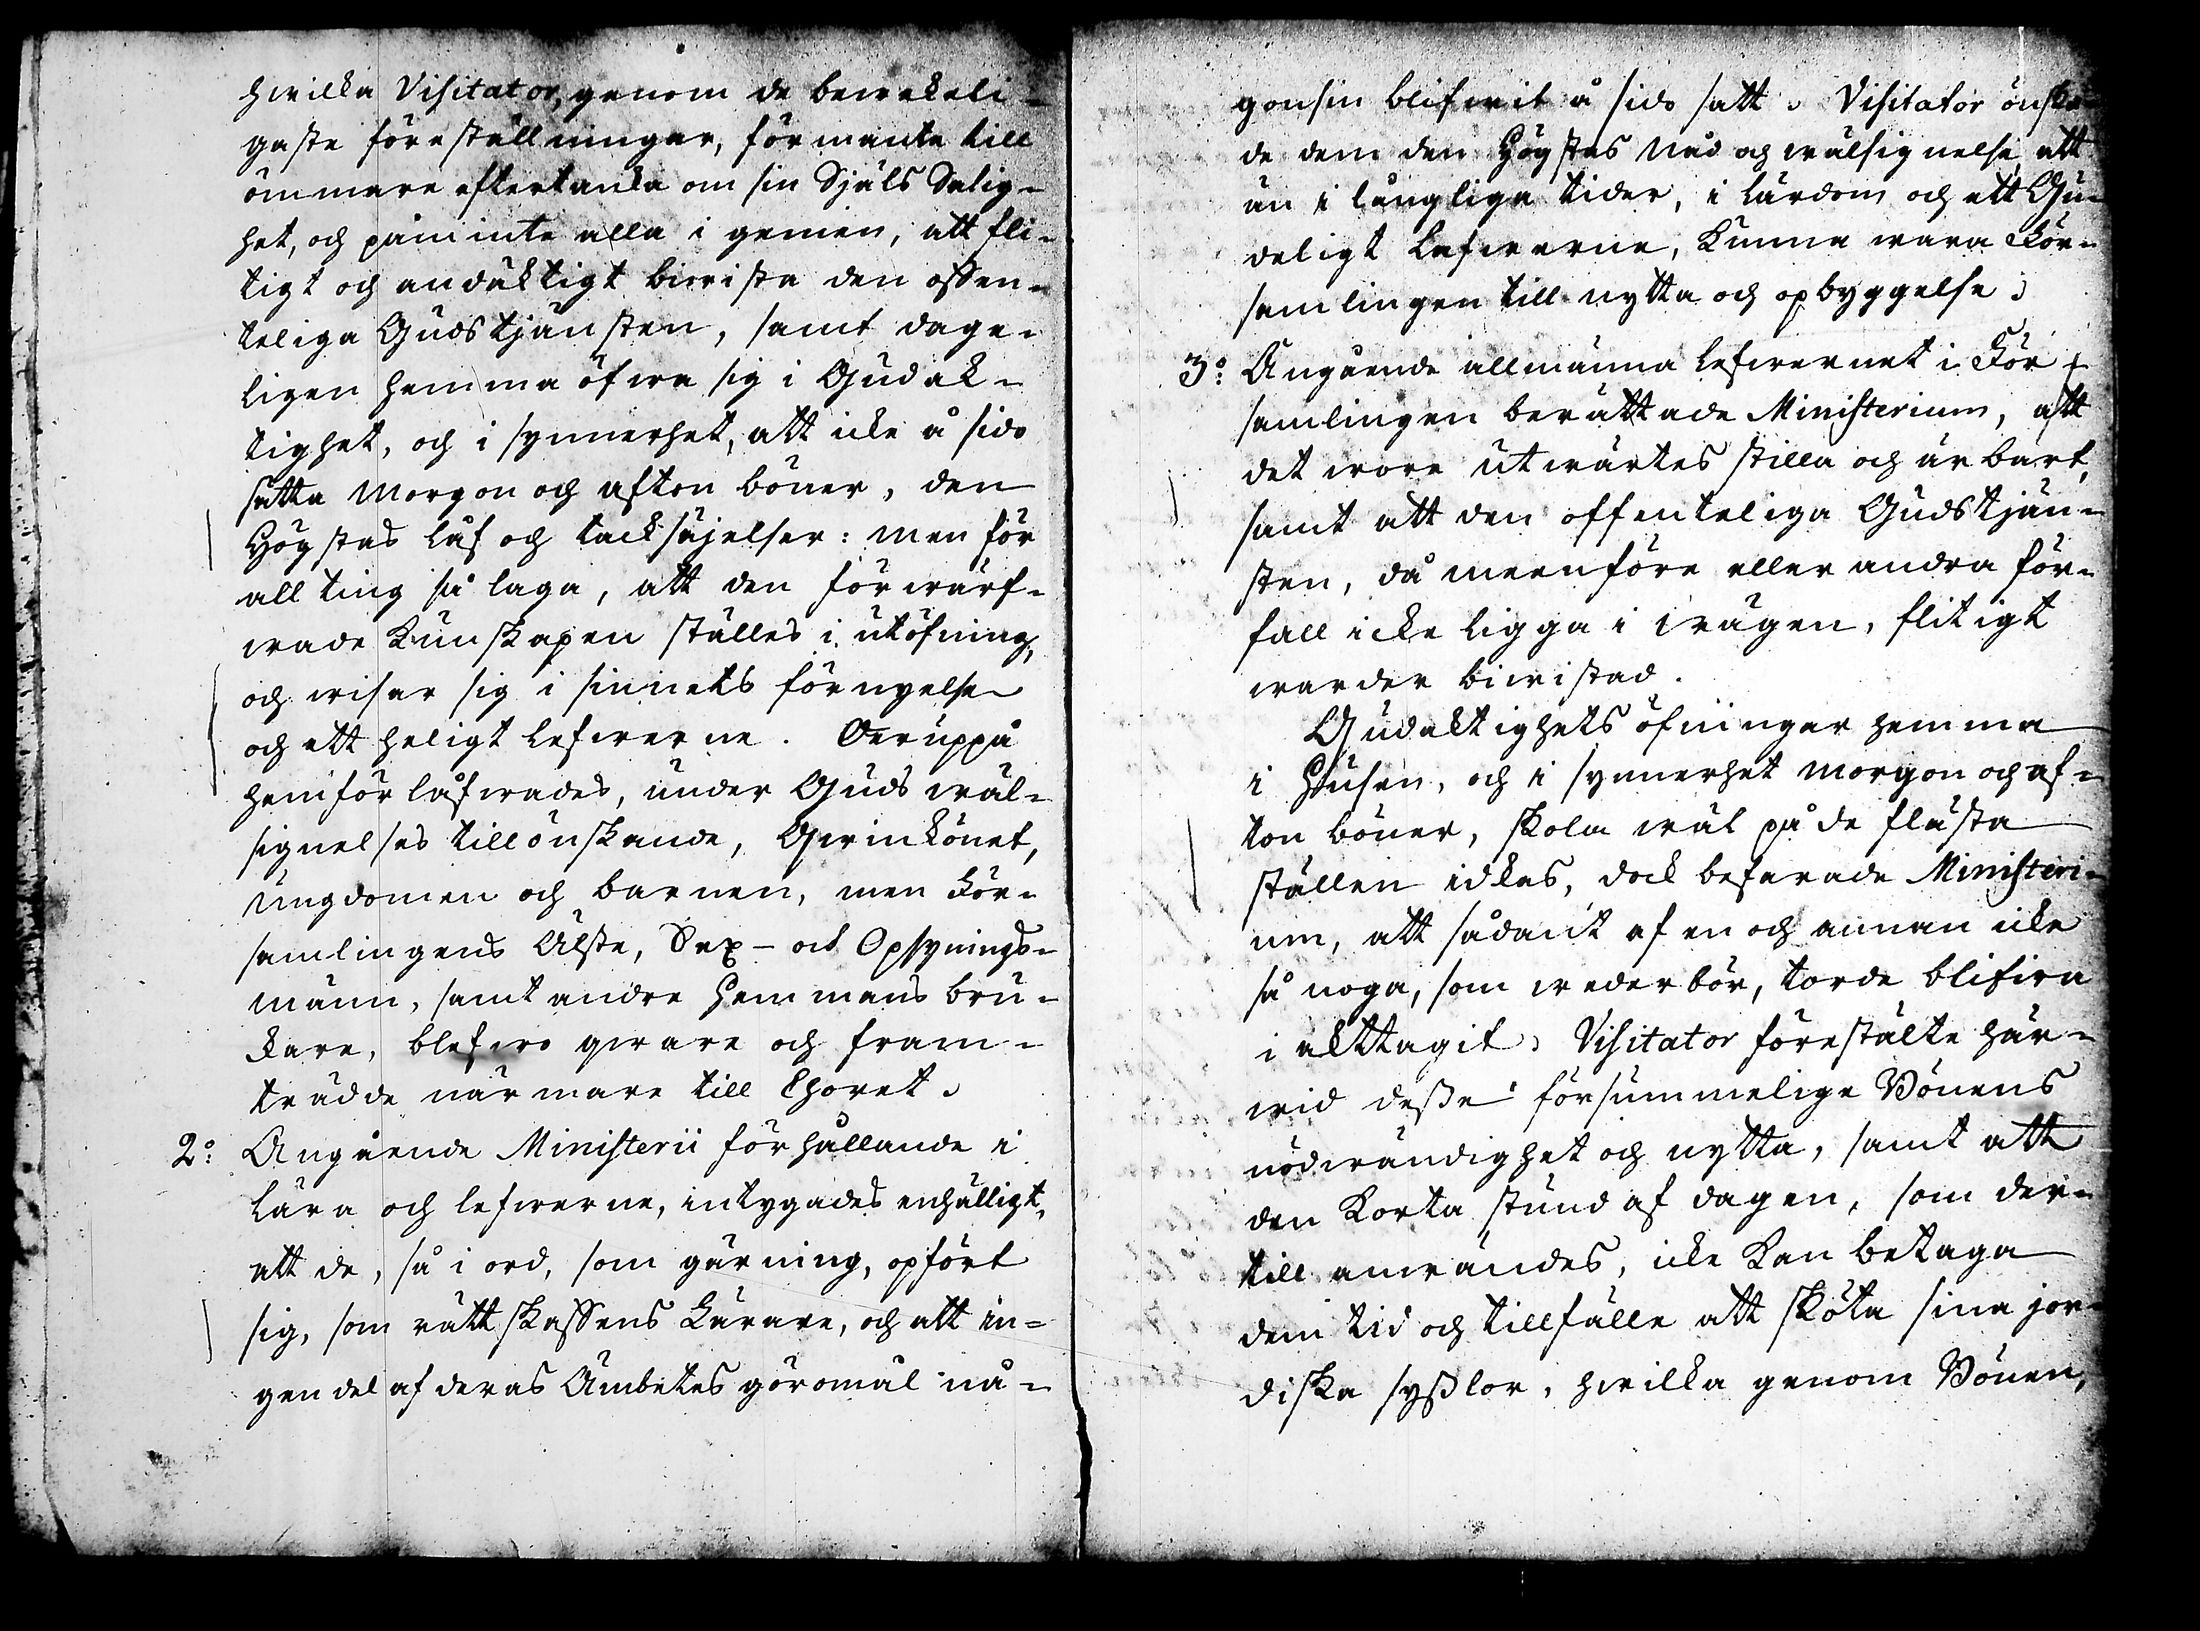 hwilka Visitator, genom de bewekeli-
gaste föreställningar, förmante till
ömmare eftertanka om sin Själs Salig-
het, och påminte alla i gemen, att fli-
tigt och andäktigt biwista den offen-
teliga Gudstjänsten, samt dage-
ligen hemma öfwa sig i Gudak-
tighet, och i synnerhet, att icke å sido
sätta Morgon och afton böner, den
Högstas låf och tacksäjelser: men för
all ting så laga, att den förwärf-
wade Kunskapen ställes i utöfning,
och wisar sig i sinnets förnyelse
och ett heligt lefwerne. Deruppå
hemförlåfwades, under Guds wäl-
signelses tillönskande, Qwinkönet,
Ungdomen och barnen, men För-
samlingens Älste, Sex- och Opsynings-
männ, samt andre Hemmans bru-
kare, blefwo qware och fram-
trädde närmare till Choret.
2:o Angående Ministerii förhållande i
Lära och lefwerne, intygades enhälligt,
att de, så i ord, som gärning, opfört
sig, som rättskaffens Lärare, och att in-
gen del af deras Ämbetes göromål nå-
gonsin blifwit å sido satt. Visitator önska-
de dem den Högstas Nåd och wälsignelse, att
än i långliga tider, i lärdom och ett Gu-
deligt Lefwerne, kunna wara För-
samlingen till nytta och opbyggelse.
3:o Angående allmänna lefwernet i För-
samlingen berättade Ministerium, att
det wore utwärtes stilla och ärbart,
samt att den offenteliga Gudstjän-
sten, då meenföre eller andra för-
fall icke ligga i wägen, flitigt
warder biwistad.
Gudaktighets öfningar hemma
i Husen, och i synnerhet morgon och af-
ton böner, skola wäl på de flästa
ställen idkas, dock befarade Ministeri-
um, att sådant af en och annan icke
så noga, som wederbör, torde blifwa
i akttagit. Visitator förestälte här-
wid deße försummelige Bönens
nödwändighet och nytta, samt att
den Korta stund af dagen, som der-
till anwändes, icke Kan betaga
dem tid och tillfälle att sköta sina jor-
diska syßlor, hwilka genom Bönen,